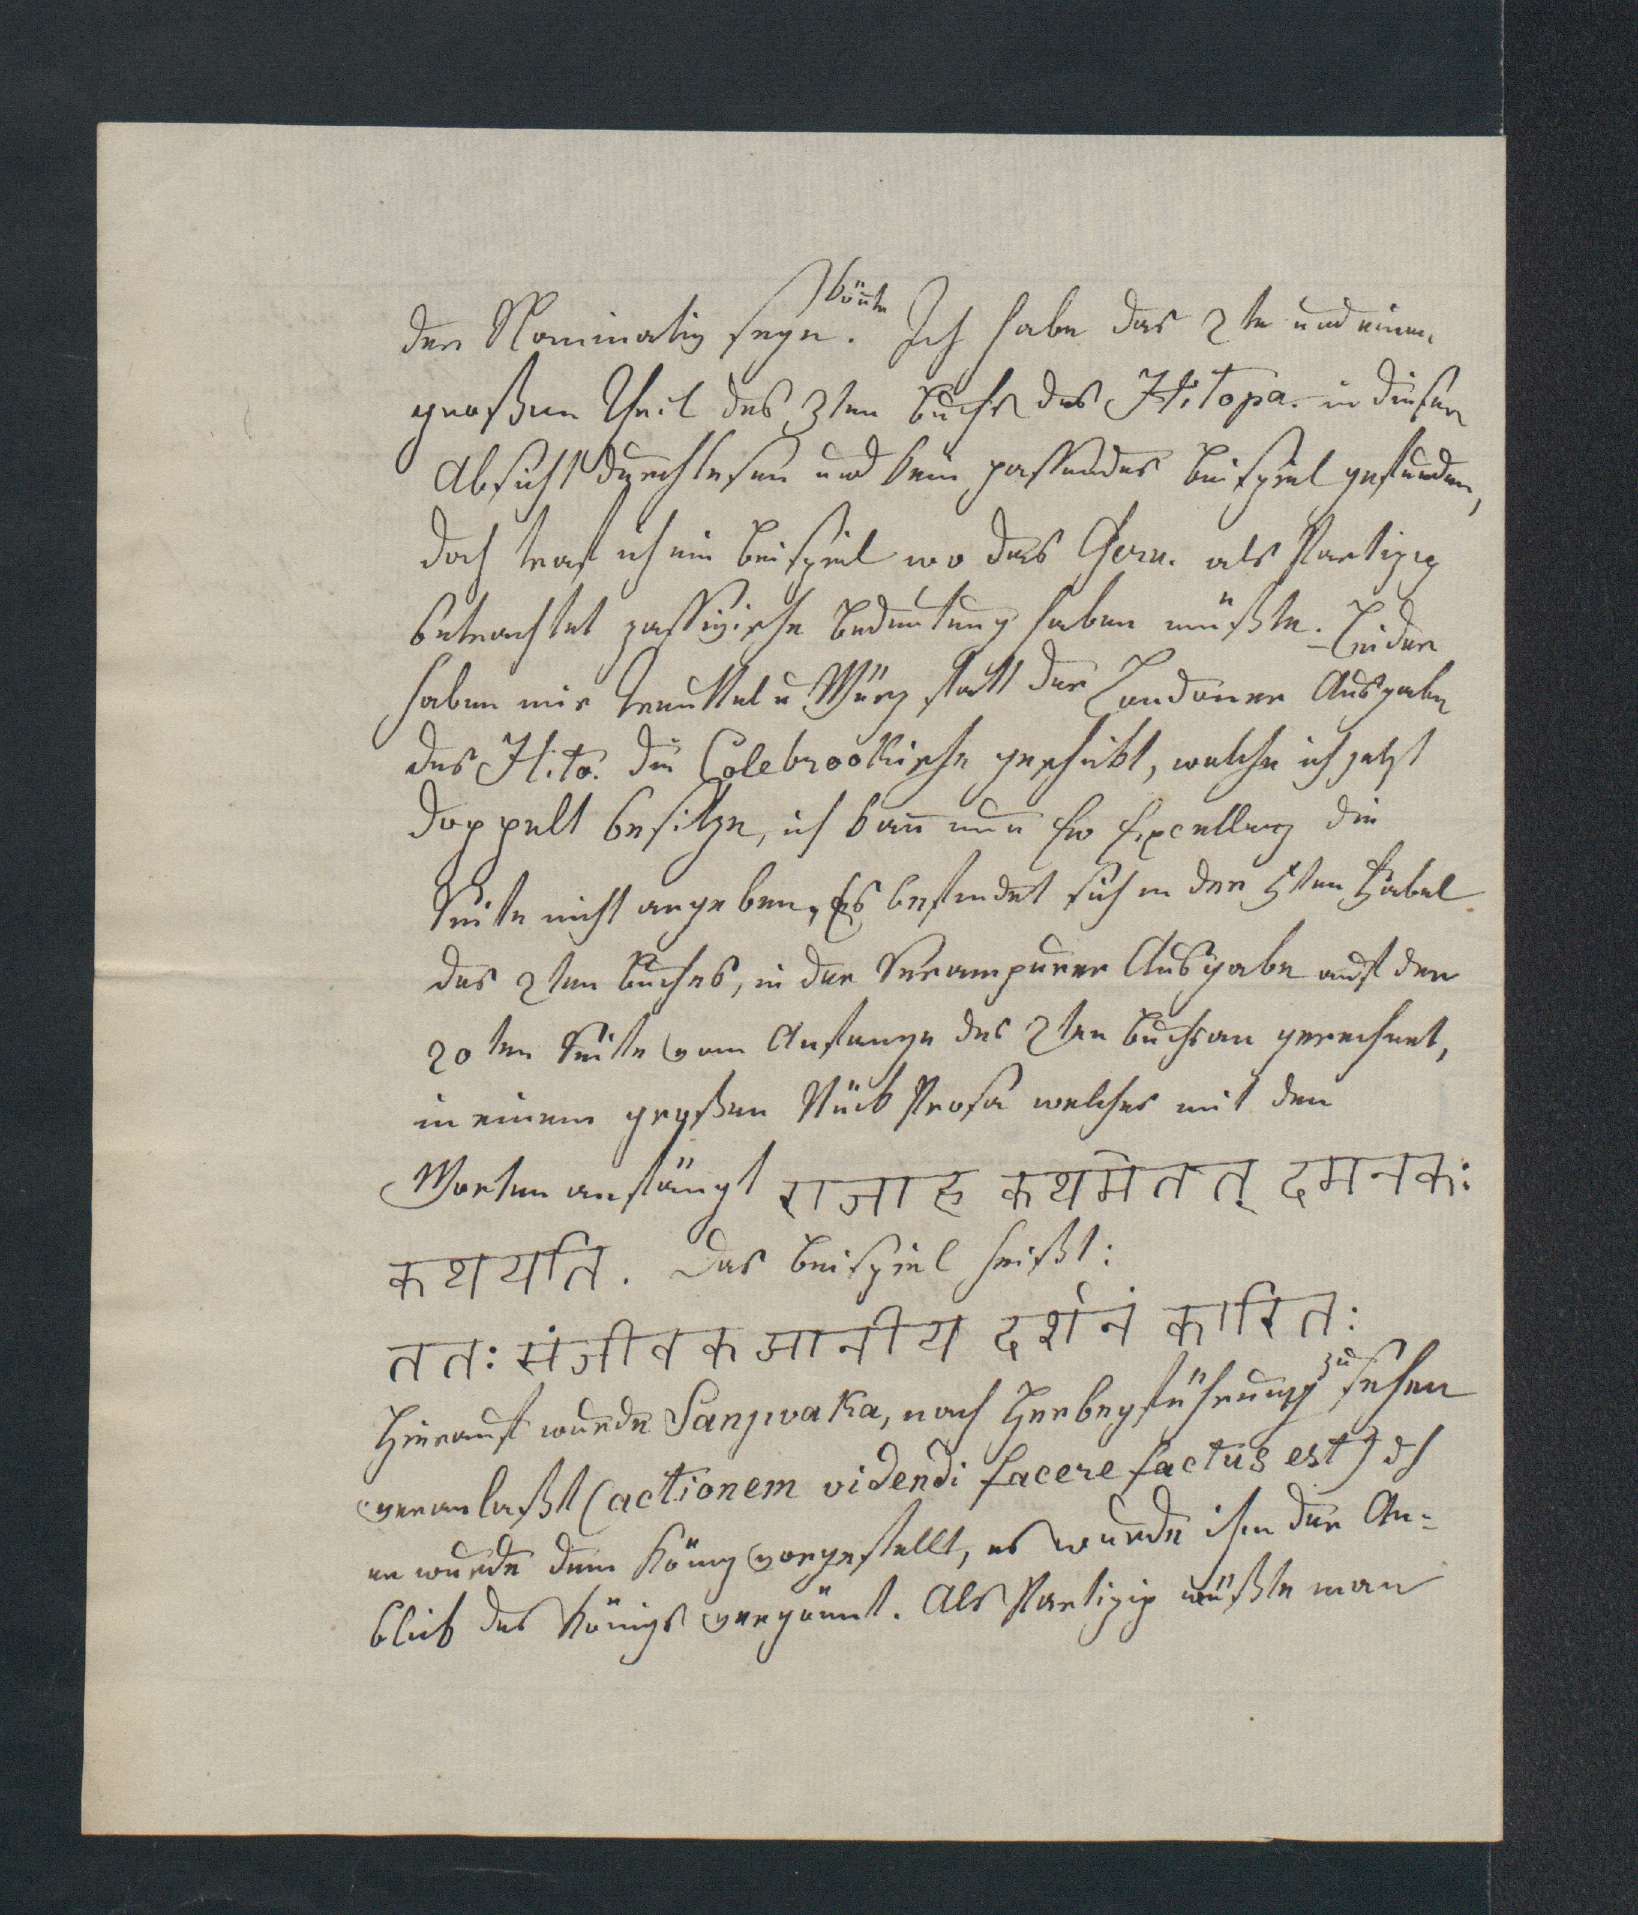 der Nominativ seyn könte. Ich habe das 2te und einen
großen Theil des 3ten Buchs des Hitopa. in dieser
Absicht durchlesen und kein passendes Beispiel gefunden,
doch traf ich ein Beispiel wo das Geru. als Partizip
betrachtet passivische Bedeutung haben müßte. Leider
haben mir Treuttel u Würz statt der Londoner Ausgabe
des Hito. die Colebrookische geschikt, welche ich jetzt
doppelt besitze, ich kan nun Ew Excellenz die
Seite nicht angeben, Es befindet sich in der 5ten Fabel
des 2ten Buches, in der Serampurer Ausgabe auf der
20ten Seite vom Anfange des 2ten Buchs an gerechnet,
in einem großen Stück Prosa welches mit den
Worten anfängt राजाह कथमेतत् दमनकः
कथयति. Das Beispiel heißt:
ततः संजीवक आनीय दर्शनं कारितः
Hierauf wurde Sanjivaka, nach Herbeyführung zu sehen
veranlaßt (actionem videndi facere factus est) dh
er wurde dem König vorgestellt, es wurde ihm der An-
blick des Königs vergönnt. Als Partizip müßte man